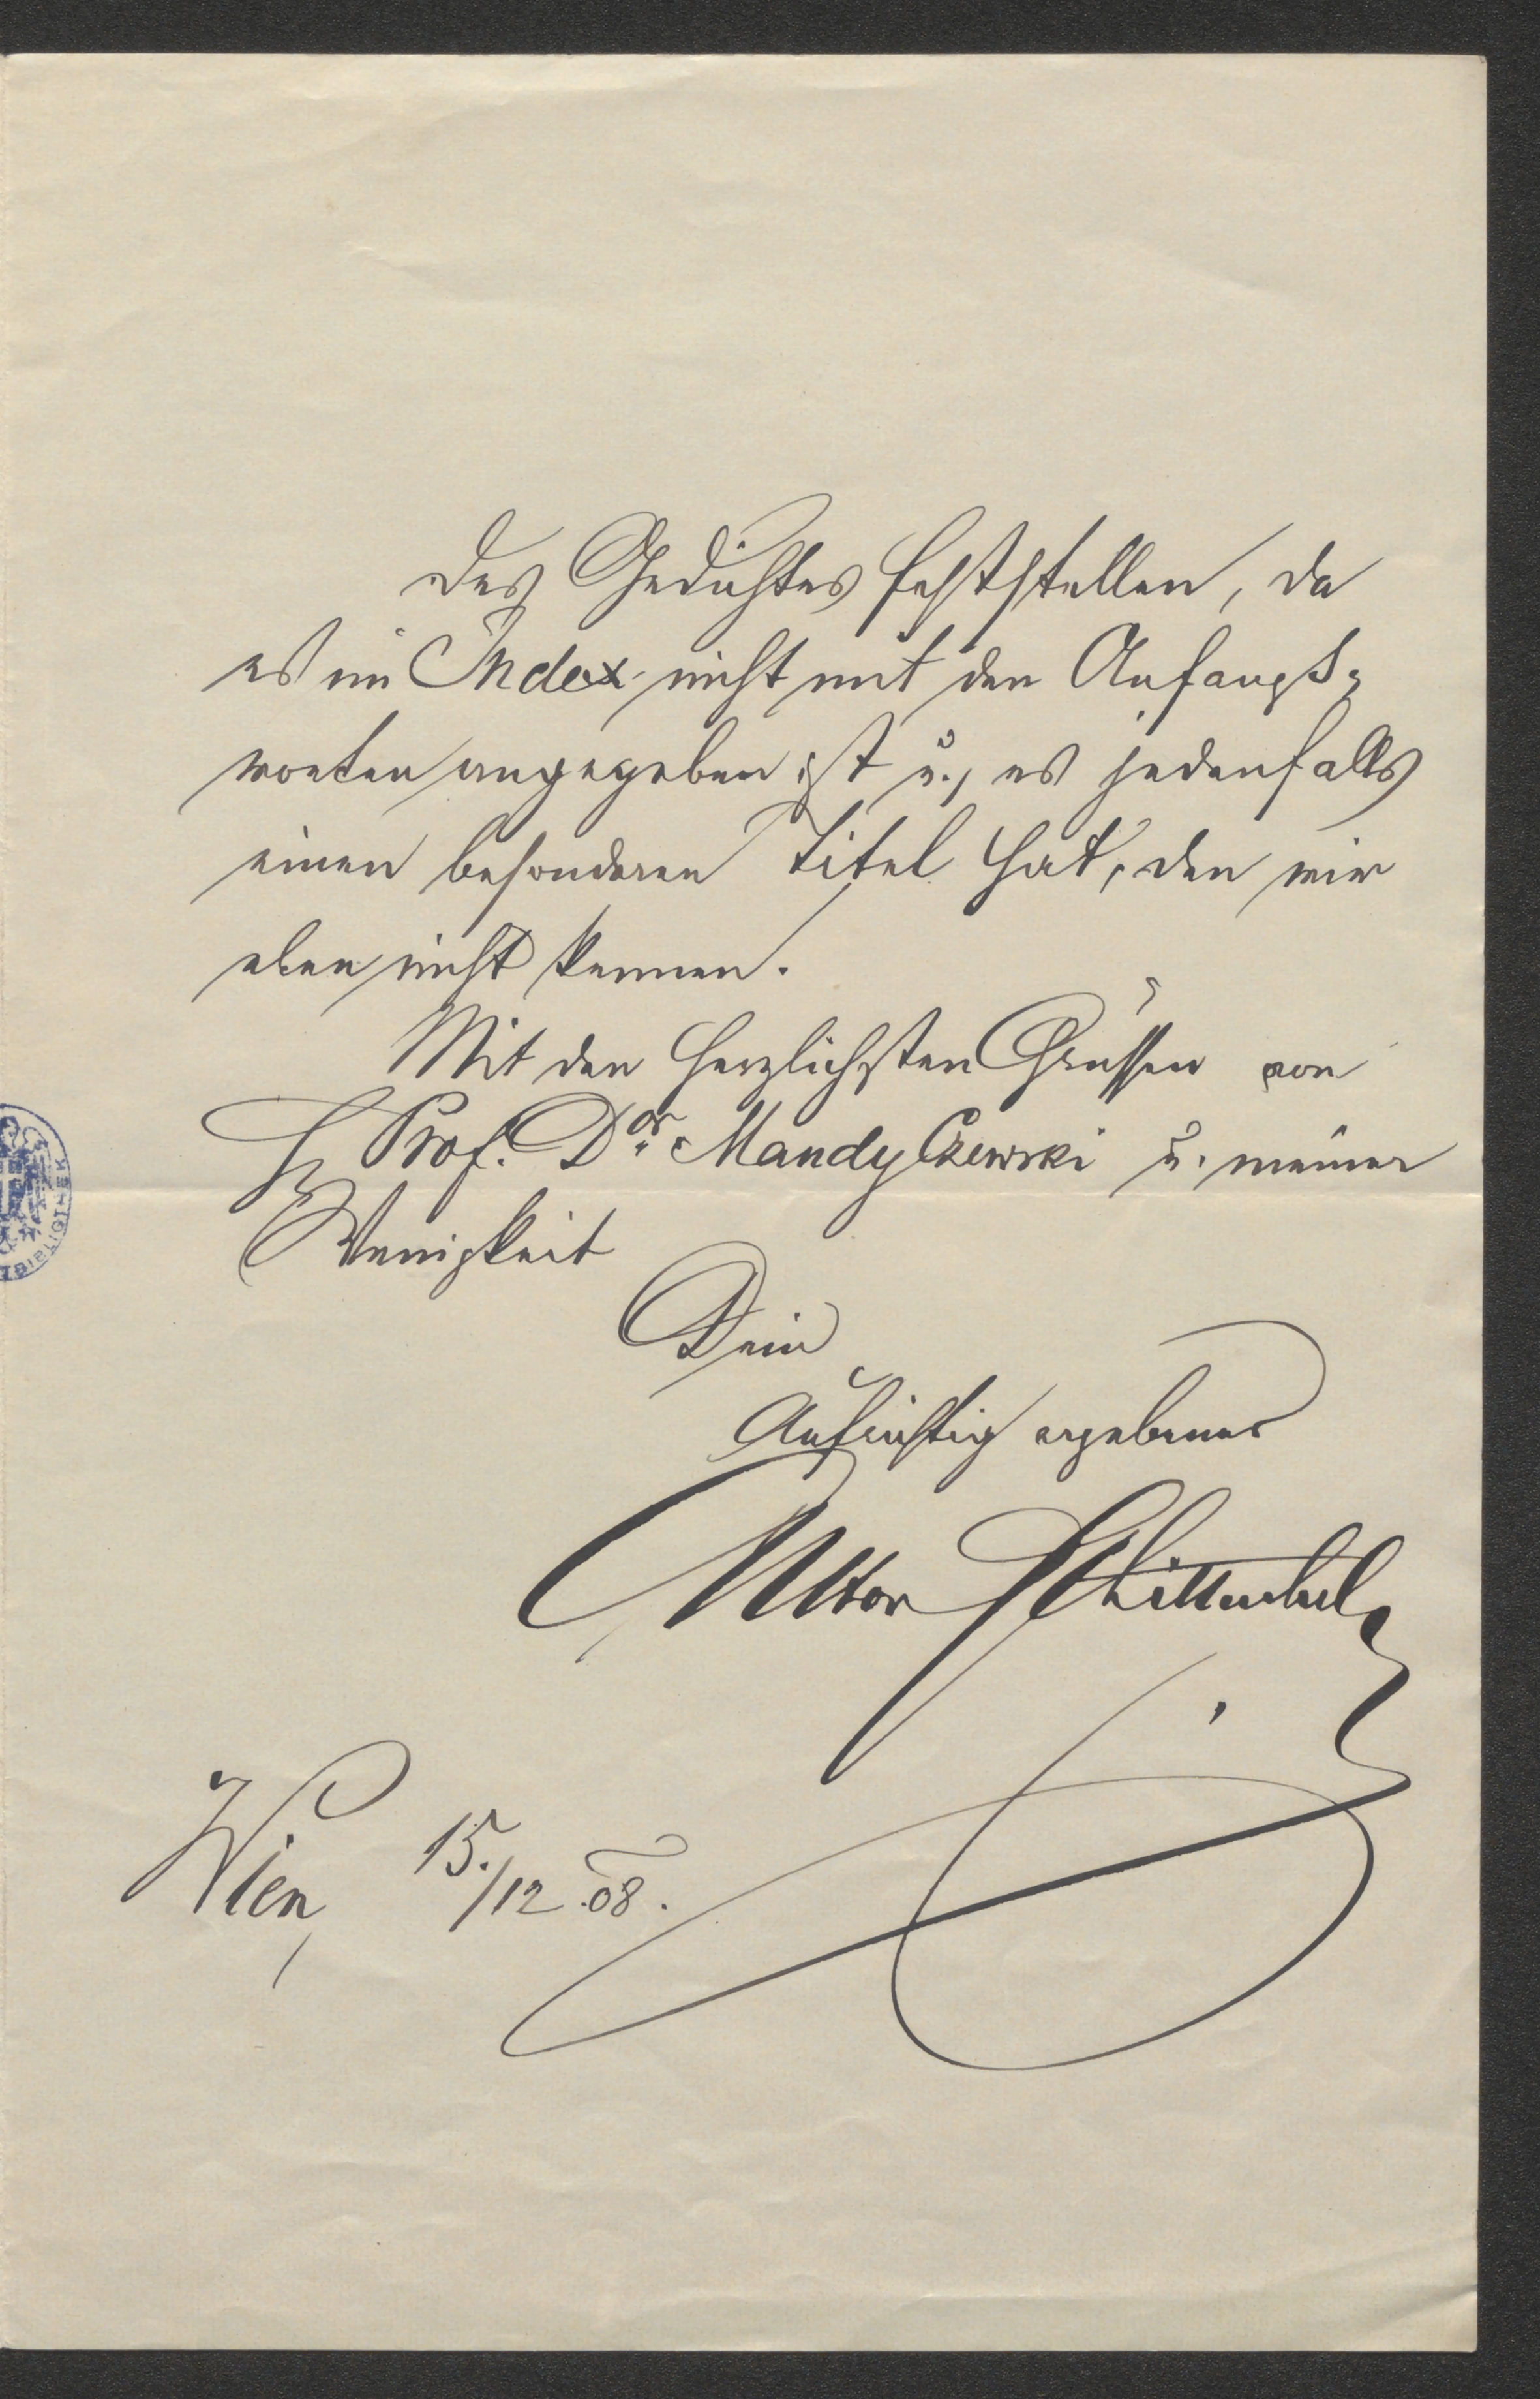 des Gedichtes feststellen, da
es im Index nicht mit den Anfangs-
worten angegeben ist u., es jedenfalls
einen besonderen Titel hat, den wir
eben nicht kennen.
Mit den herzlichsten Grüssen von
H Prof. Dor. Mandyczewski u. meiner
Wenigkeit
Dein
Aufrichtig ergebener
Wien, 15./12.08.
BIBLIOTHEK